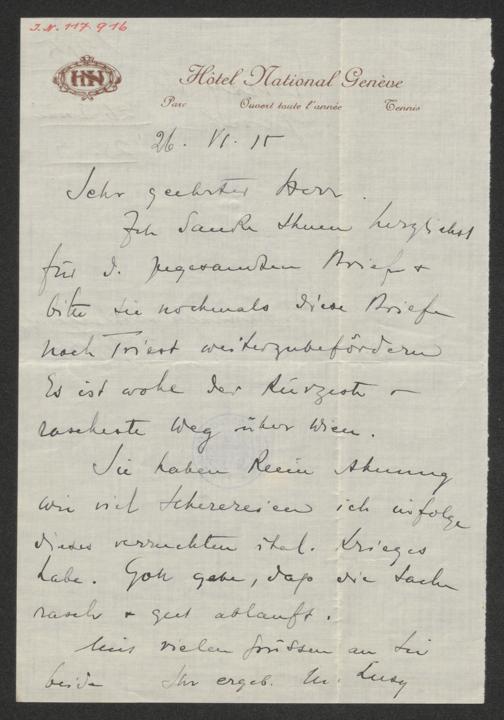 I.N. 117.916
HN
Hôtel National Genève
Parc Ouvert toute l'année Tennis
26. VI. 15
Sehr geehrter Herr.
Ich danke Ihnen herzlichst
für d. zugesandten Briefe +
bitte Sie nochmals diese Briefe
nach Triest weiterzubefördern
Es ist wohl der kürzeste –
rascheste Weg über Wien.
Sie haben keine Ahnung
wie viel Scherereien ich infolge
dieses verruchten ital. Krieges
habe. Gott gebe, daß die Sache
rasch + gut ablauft.
Mit vielen Grüssen an Sie
beide Ihr ergeb. M.